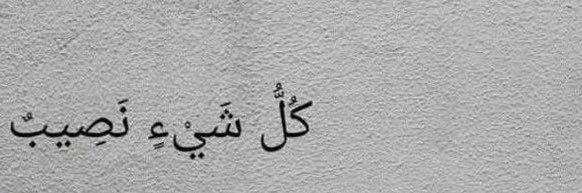 كُلُّ شَيْءٍ نَصِيبٌ